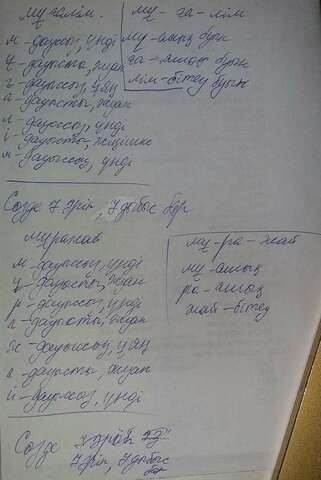 мұғалім.
м - дауыссыз, үнді
ұ - дауысты, жуан
ғ - дауыссыз, ұяң
а - дауысты, жуан
л - дауыссыз, үнді
і - дауысты, жіңішке
м - дауыссыз, үнді
мұ - ға - лім
мұ - ашық буын
ға - ашық буын
лім - бітеу буын
Сөзде 7 әріп, 7 дыбыс бар
мұражай
м - дауыссыз, үнді
ұ - дауысты, жуан
р - дауыссыз, үнді
а - дауысты, жуан
ж - дауыссыз, ұяң
а - дауысты, жуан
й - дауыссыз, үнді
мұ - ра - жай
мұ - ашық
ра - ашық
жай - бітеу
Сөзде
7 әріп, 7 дыбыс
бар